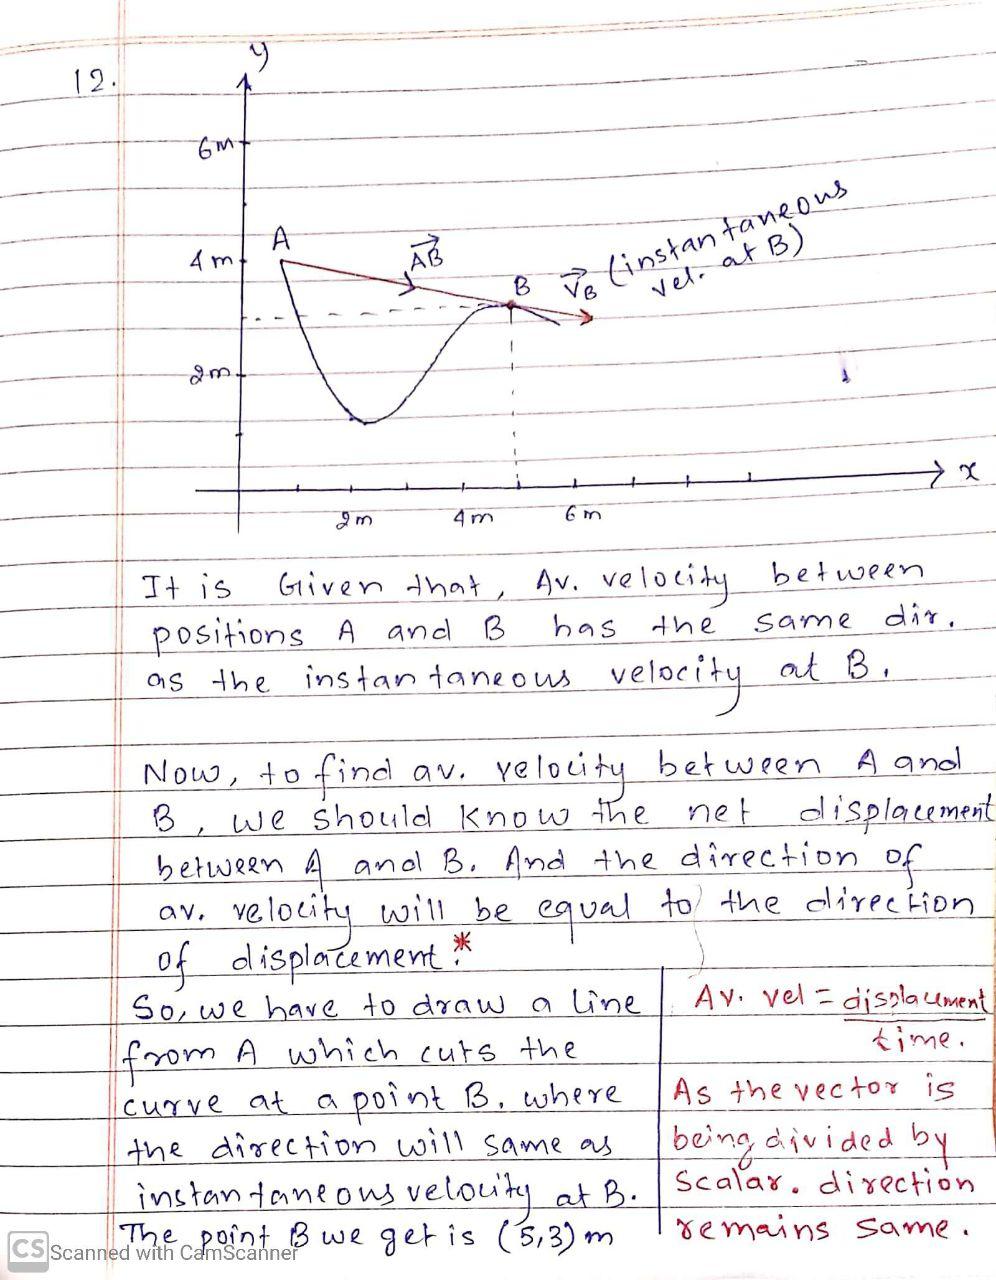 12.
y
6m
4m
2m
A
AB
B
VB (instantaneous
vel. at B)
x
2m
4m
6m
It is Given that, Av. velocity between
positions A and B has the same dir.
as the instantaneous velocity at B.
Now, to find av. velocity between A and
B, we should know the net displacement
between A and B. And the direction of
av. velocity will be equal to the direction
of displacement.*
So, we have to draw a line
from A which cuts the
curve at a point B. where
the direction will same as
instantaneous velocity at B.
The point B we get is (5,3) m
Av. vel = displacement
time.
As the vector is
being divided by
scalar. direction
remains same.
CS Scanned with CamScanner